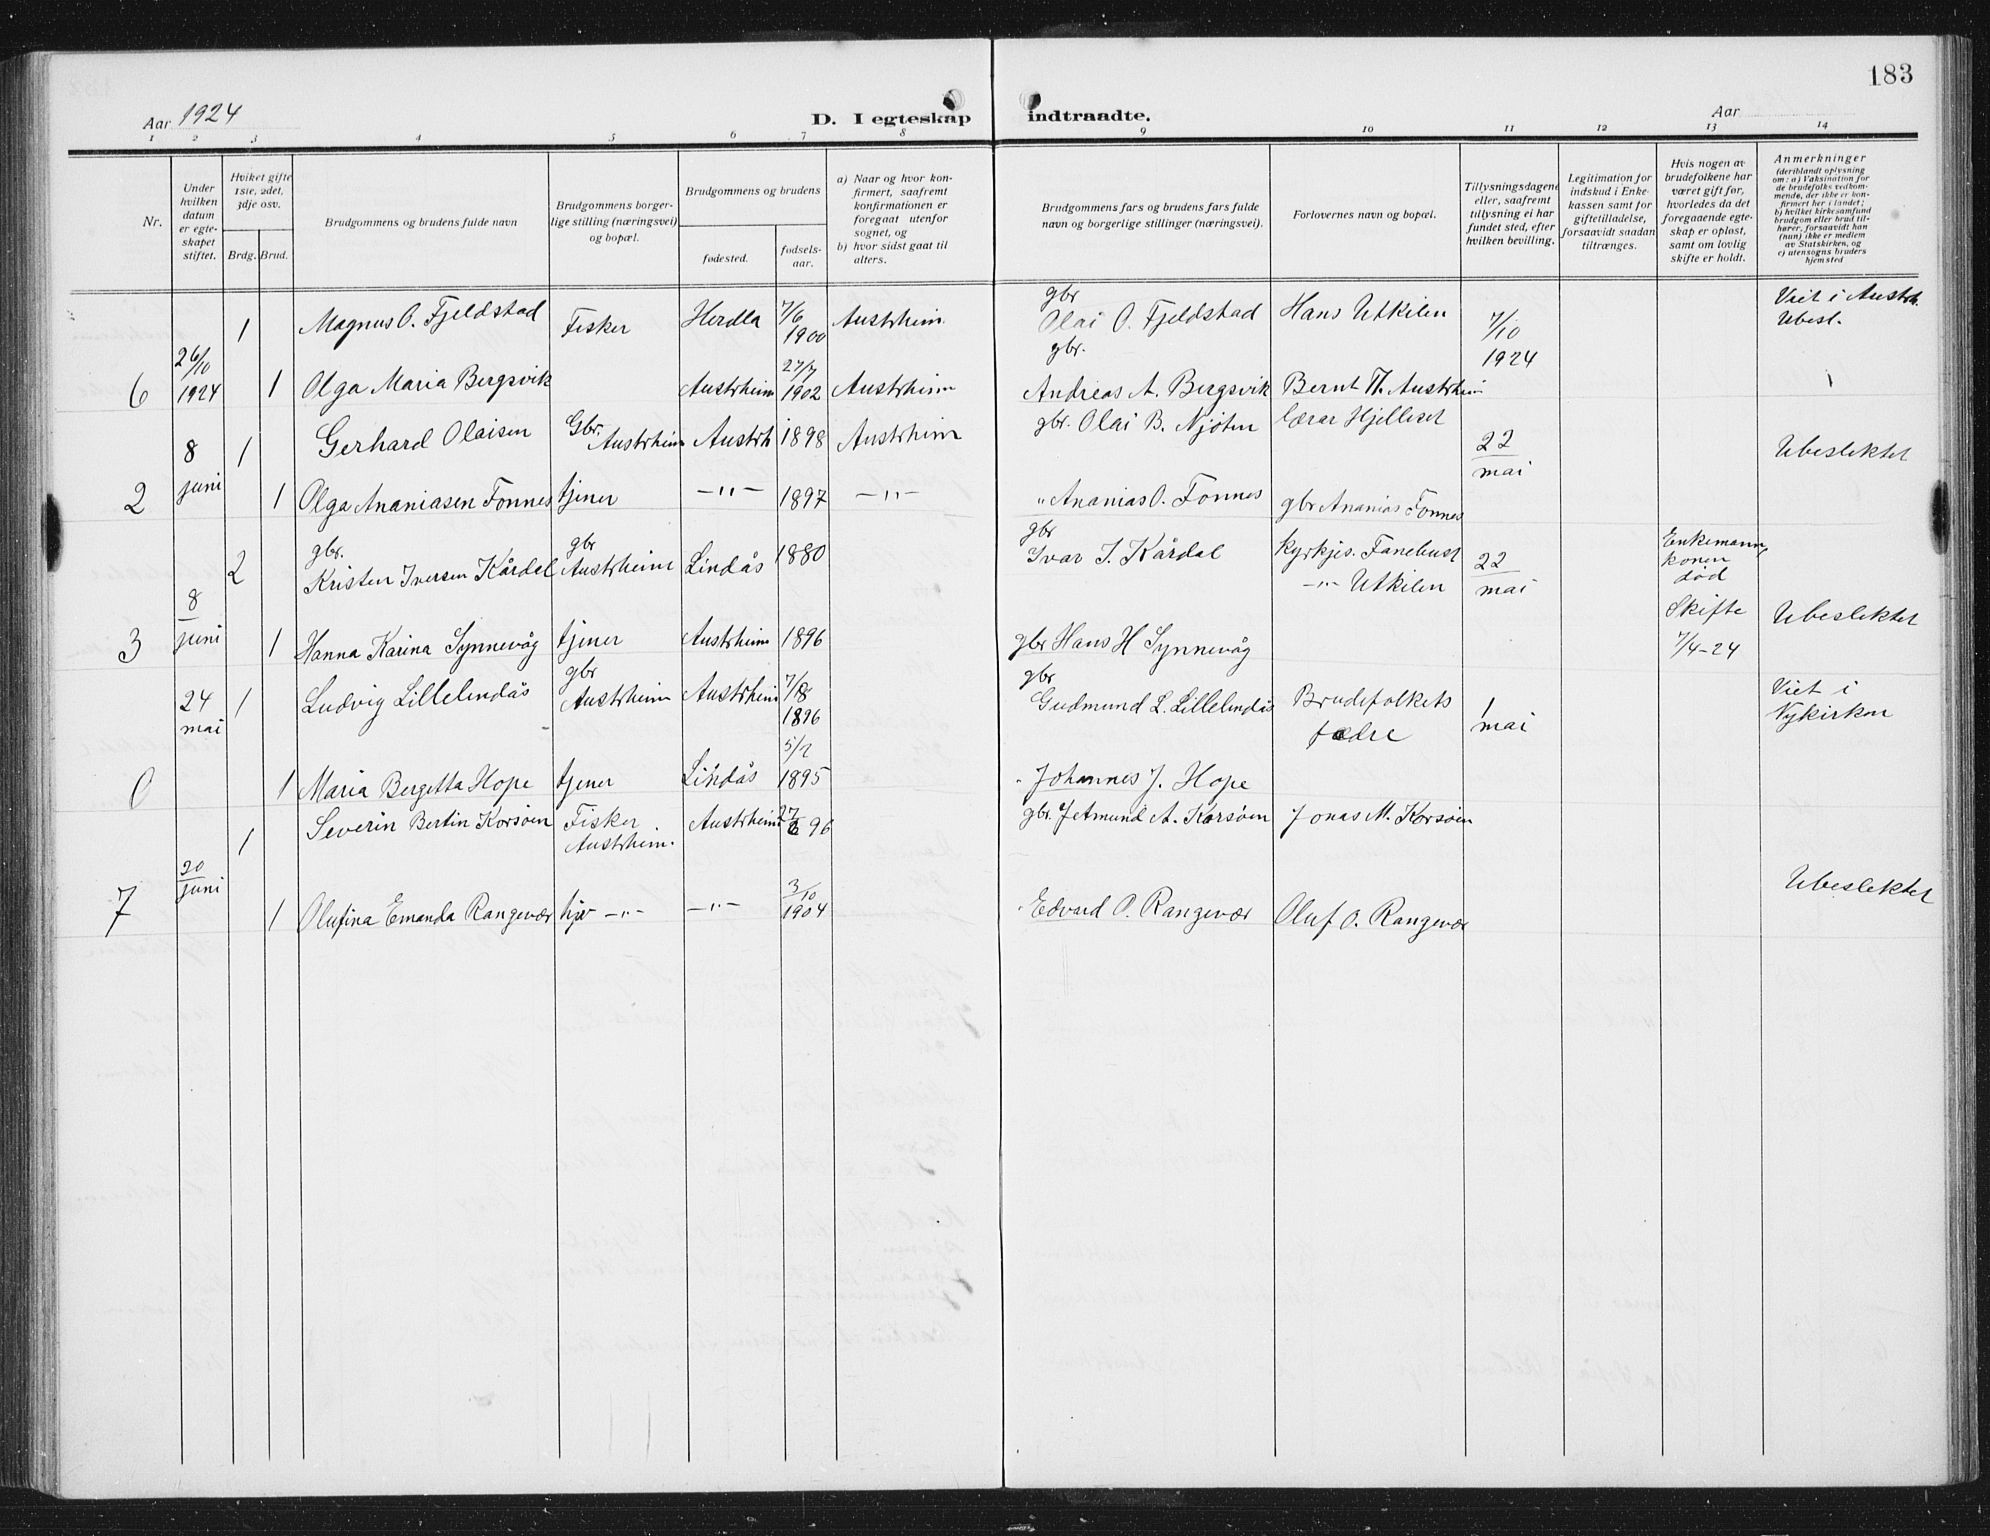 183
Aar 1924
D. I egteskap indtraadte.
Aar
1 2 3 4 5 6 7 8 9 10 11 12 13 14
Nr.
Under hvilken datum er egte- skapet stiftet.
Hviket gifte 1ste, 2det, 3dje osv.
Brdg. Brud.
Brudgommens og brudens fulde navn
Brudgommens borger- lige stilling (næringsvei) og bopæl.
Brudgommens og brudens
fødested.
fødsels- aar.
a) Naar og hvor kon- firmert, saafremt konfirmationen er foregaat utenfor sognet, og
b) hvor sidst gaat til alters.
Brudgommens fars og brudens fars fulde navn og borgerlige stillinger (næringsvei).
Forlovernes navn og bopæl.
Tillysningsdagene eller, saafremt tillysning ei har fundet sted, efter hvilken bevilling.
Legitimation for indskud i Enke- kassen samt for giftetilladelse, forsaavidt saadan tiltrænges.
Hvis nogen av brudefolkene har været gift før, hvorledes da det foregaaende egte- skap er opløst, samt om lovlig skifte er holdt.
Anmerkninger (deriblandt oplysning om: a) Vaksination for de brudefolks vedkom- mende, der ikke er kon- firmert her i landet; b) hvilket kirkesamfund brudgom eller brud til- hører, forsaavidt han (hun) ikke er medlem av Statskirken, og c) utensogns bruders hjemsted
1 Magnus O. Fjeldstad Fisker Herdla 7/6 1900 Austrheim. gbr Olai O. Fjeldstad Hans Utkilen 7/10 1924 Viet i Austrh. Ubesl.
6 26/10 1924 1 Olga Maria Bergsvik Austrheim 27/7 1902 Austrheim gbr. Andreas A. Bergsvik Bernt Th. Austrheim
8 juni 1 Gerhard Olaisen Gbr. Austrheim Austrh 1898 Austrheim gbr. Olai B. Njøten Lærar Hjelleset 22 mai Ubeslektet
2 1 Olga Ananiasen Fonnes tjener —"— 1897 —"— " Ananias O. Fonnes gbr Ananias Fonnes
2 gbr. Kristen Iversen Kårdal gbr Austrheim Lindås 1880 gbr Ivar I. Kårdal Kyrkjes. Fanebust —"— Utkilen 22 mai Enkemann, konen død
3 8 juni 1 Hanna Karina Synnevåg tjener Austrheim 1896 gbr Hans H Synnevåg Skifte 7/4-24 Ubeslektet
24 mai 1 Ludvig Lillelindås gbr Austrheim Austrheim 1896 gbr Gudmund L. Lillelindås Brudefolkets fædre 1 mai Viet i Nykirken
0 1 Maria Bergetta Hope tjener Lindås 1895 Johannes J. Hope
1 Severin Bertin Korsøen Fisker Austrheim. Austrheim 96 gbr. Jetmund A. Korsøen Jonas M. Korsøen
7 juni 1 Olufina Emanda Rangevær —"— —"— 3/10 1904 Edvard O. Rangevær Oluf O. Rangevær Ubeslektet